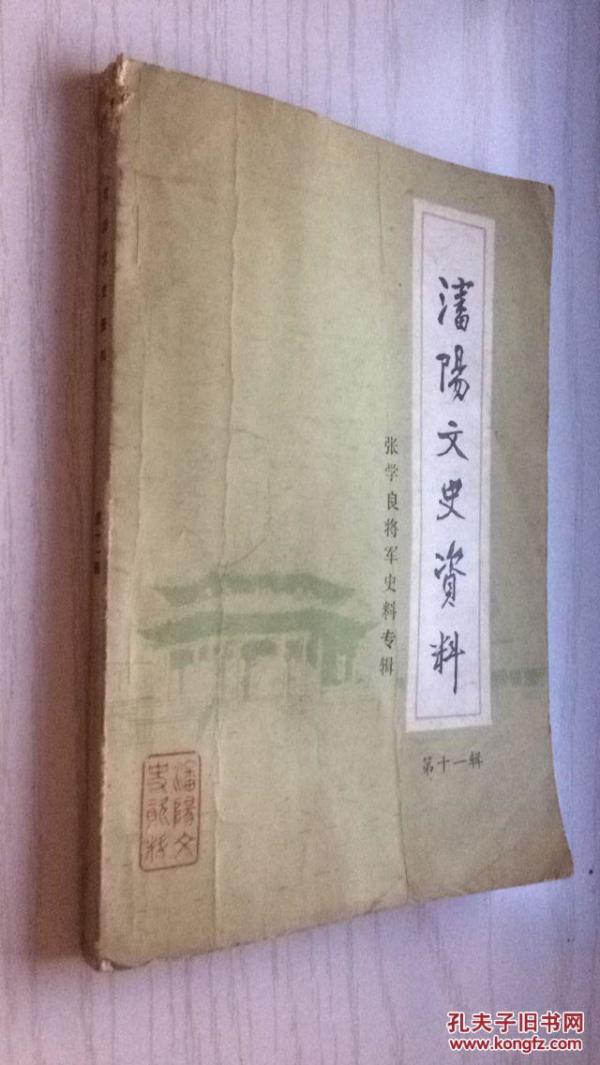 瀋陽文史資料
张学良将军史料专辑
第十一辑
瀋陽文
史資料
孔夫子旧书网
www.kongfz.com